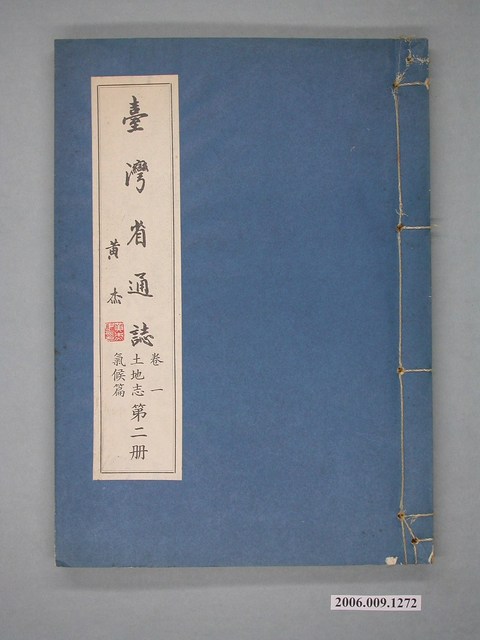 臺灣省通誌
卷一
土地志
氣候篇
第二册
黃杰
2006.009.1272